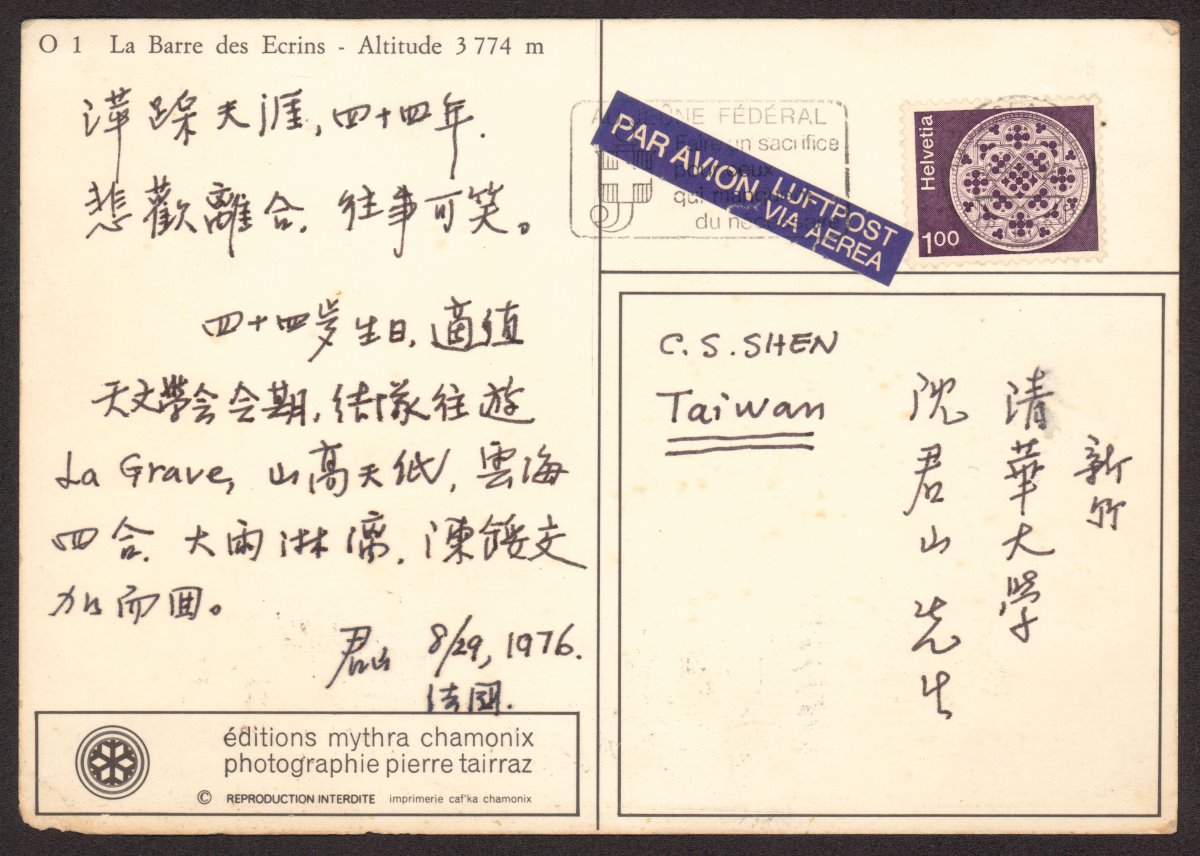 O 1 La Barre des Ecrins - Altitude 3 774 m
萍踪天涯,四十四年.
悲歡離合.往事可笑。
四十四岁生日,適值
天文學会会期,结隊往遊
La Grave,山高天低,雲海
四合.大雨淋漓,凍餒交
加而回。
君山 8/29, 1976.
法國.
éditions mythra chamonix
photographie pierre tairraz
© REPRODUCTION INTERDITE imprimerie caf'ka chamonix
FÉDÉRAL
Faire un sacrifice
qui
du
PAR AVION LUFTPOST
VIA AEREA
Helvetia
1.00
C. S. SHEN
Taiwan
新竹
清華大学
沈君山先生